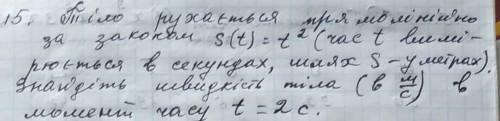 15. Тіло рухається прямолінійно
за законом S(t) = t² (час t вимі-
рюється в секундах, шлях S - у метрах).
Знайдіть швидкість тіла (в м/с) в
момент часу t = 2 с.